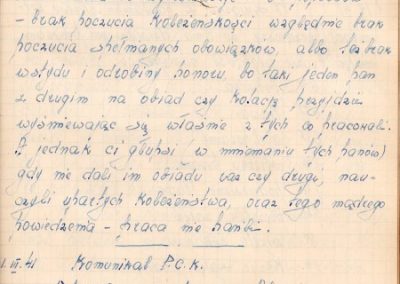 - brak poczucia koleżeńskości względnie brak
poczucia spełnianych obowiązków, albo też brak
wstydu i odrobiny honoru, bo taki jeden pan
z drugim na obiad czy kolację przyjdzie
wyśmiewając się właśnie z tych co pracowali.
A jednak ci głupsi (w mniemaniu tych panów)
gdy nie dali im obiadu raz czy drugi, nau-
czyli upartych koleżeństwa, oraz tego mądrego
powiedzenia - praca nie hańbi.
1.VI.41 Komunikat P.C.K.